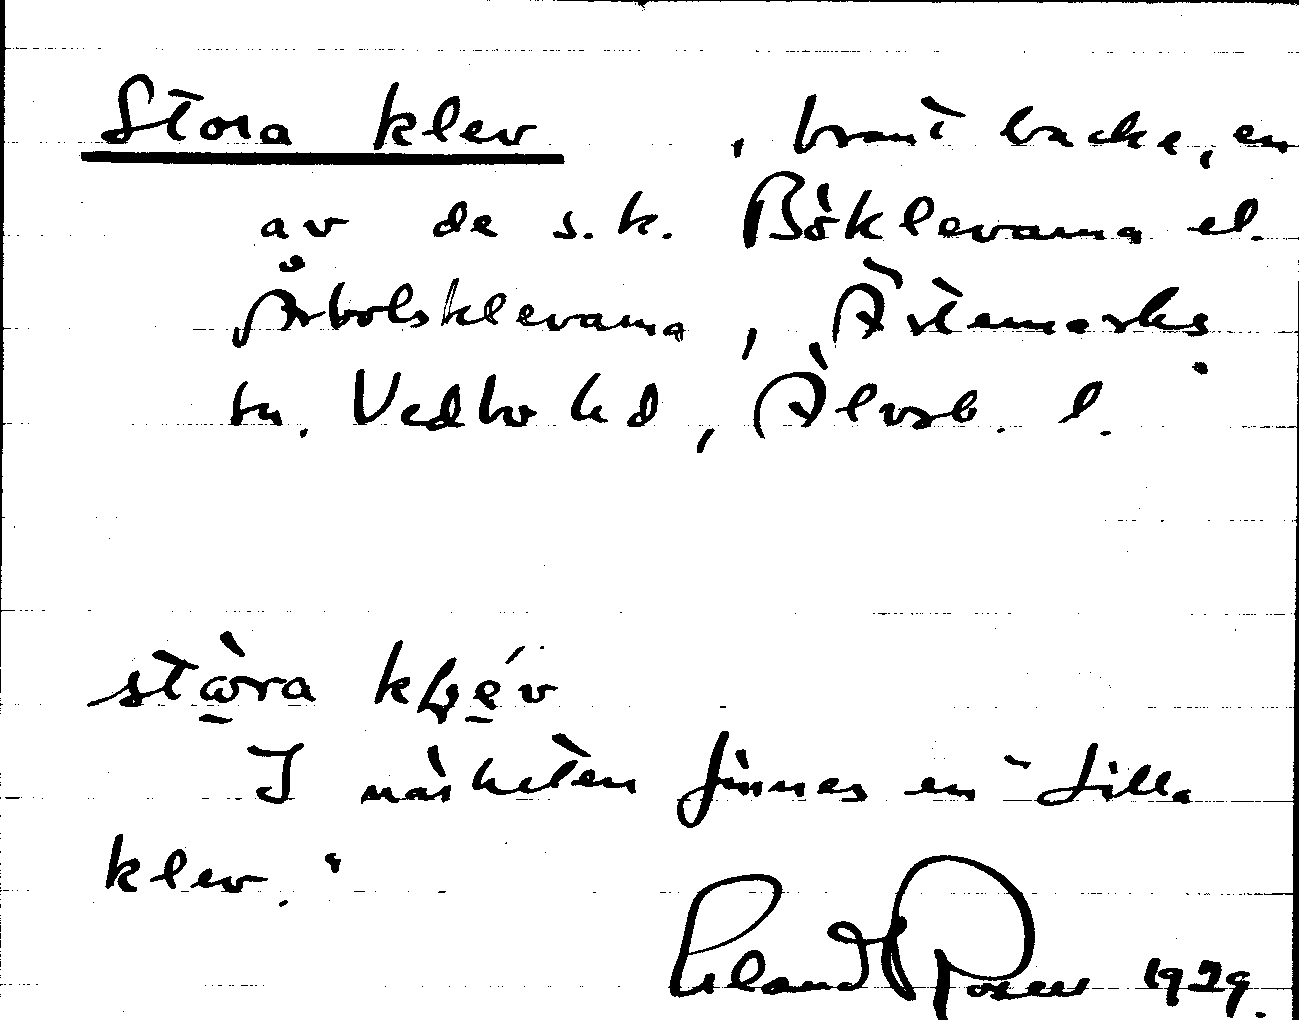 Stora klev , brant backe, en
av de s.k. Böklevarna el.
Årbolsklevarna, Ärtemarks
sn. Vedbo hd, Älvsb. l.
stὼra kḷẹ́v
I närheten finnes en "Lilla
klev."
Erland Rosell 1929.